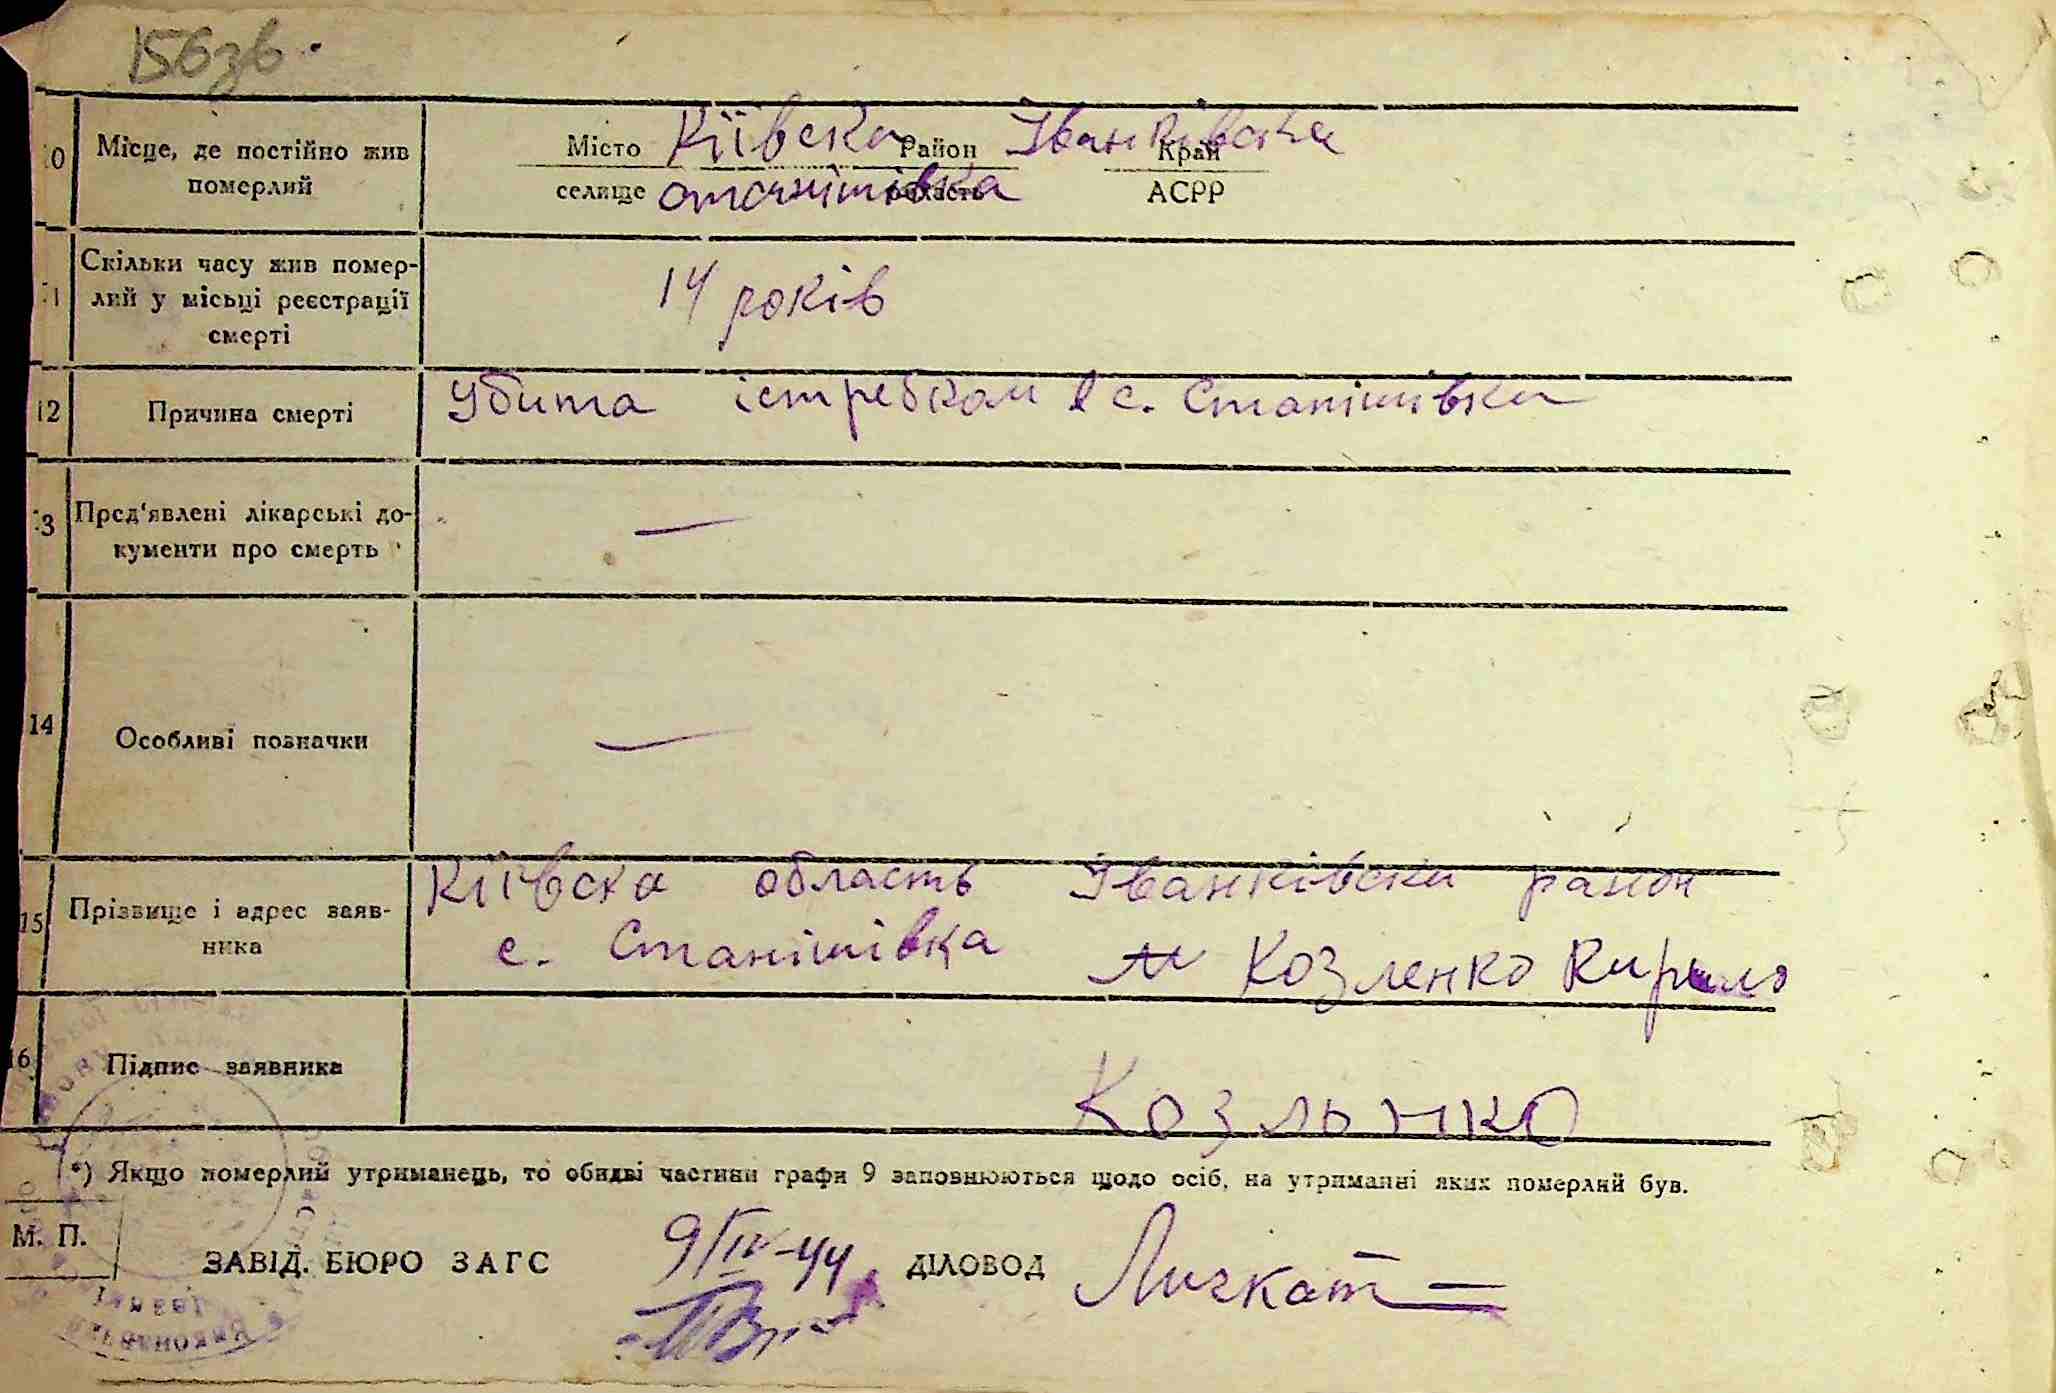 156зв.
10 Місце, де постійно жив померлий
Місто Кіївска Район Іванківска Край
селище станішівка область АСРР
11 Скільки часу жив помер-
лий у місьці реєстрації
смерті
14 років
12 Причина смерті Убита істребком в с. Станішівки
13 Пред'явлені лікарські до-
кументи про смерть
—
14 Особливі позначки —
15 Прізвище і адрес заяв-
ника
Кіівска область Іванківски район
с. Станішівка Козленко Кирило
16 Підпис заявника Козлынко
*) Якщо померлий утриманець, то обидві частини графи 9 заповнюються щодо осіб, на утриманні яких померлий був.
М. П.
ЗАВІД. БЮРО ЗАГС 9/IV-44 ДІЛОВОД